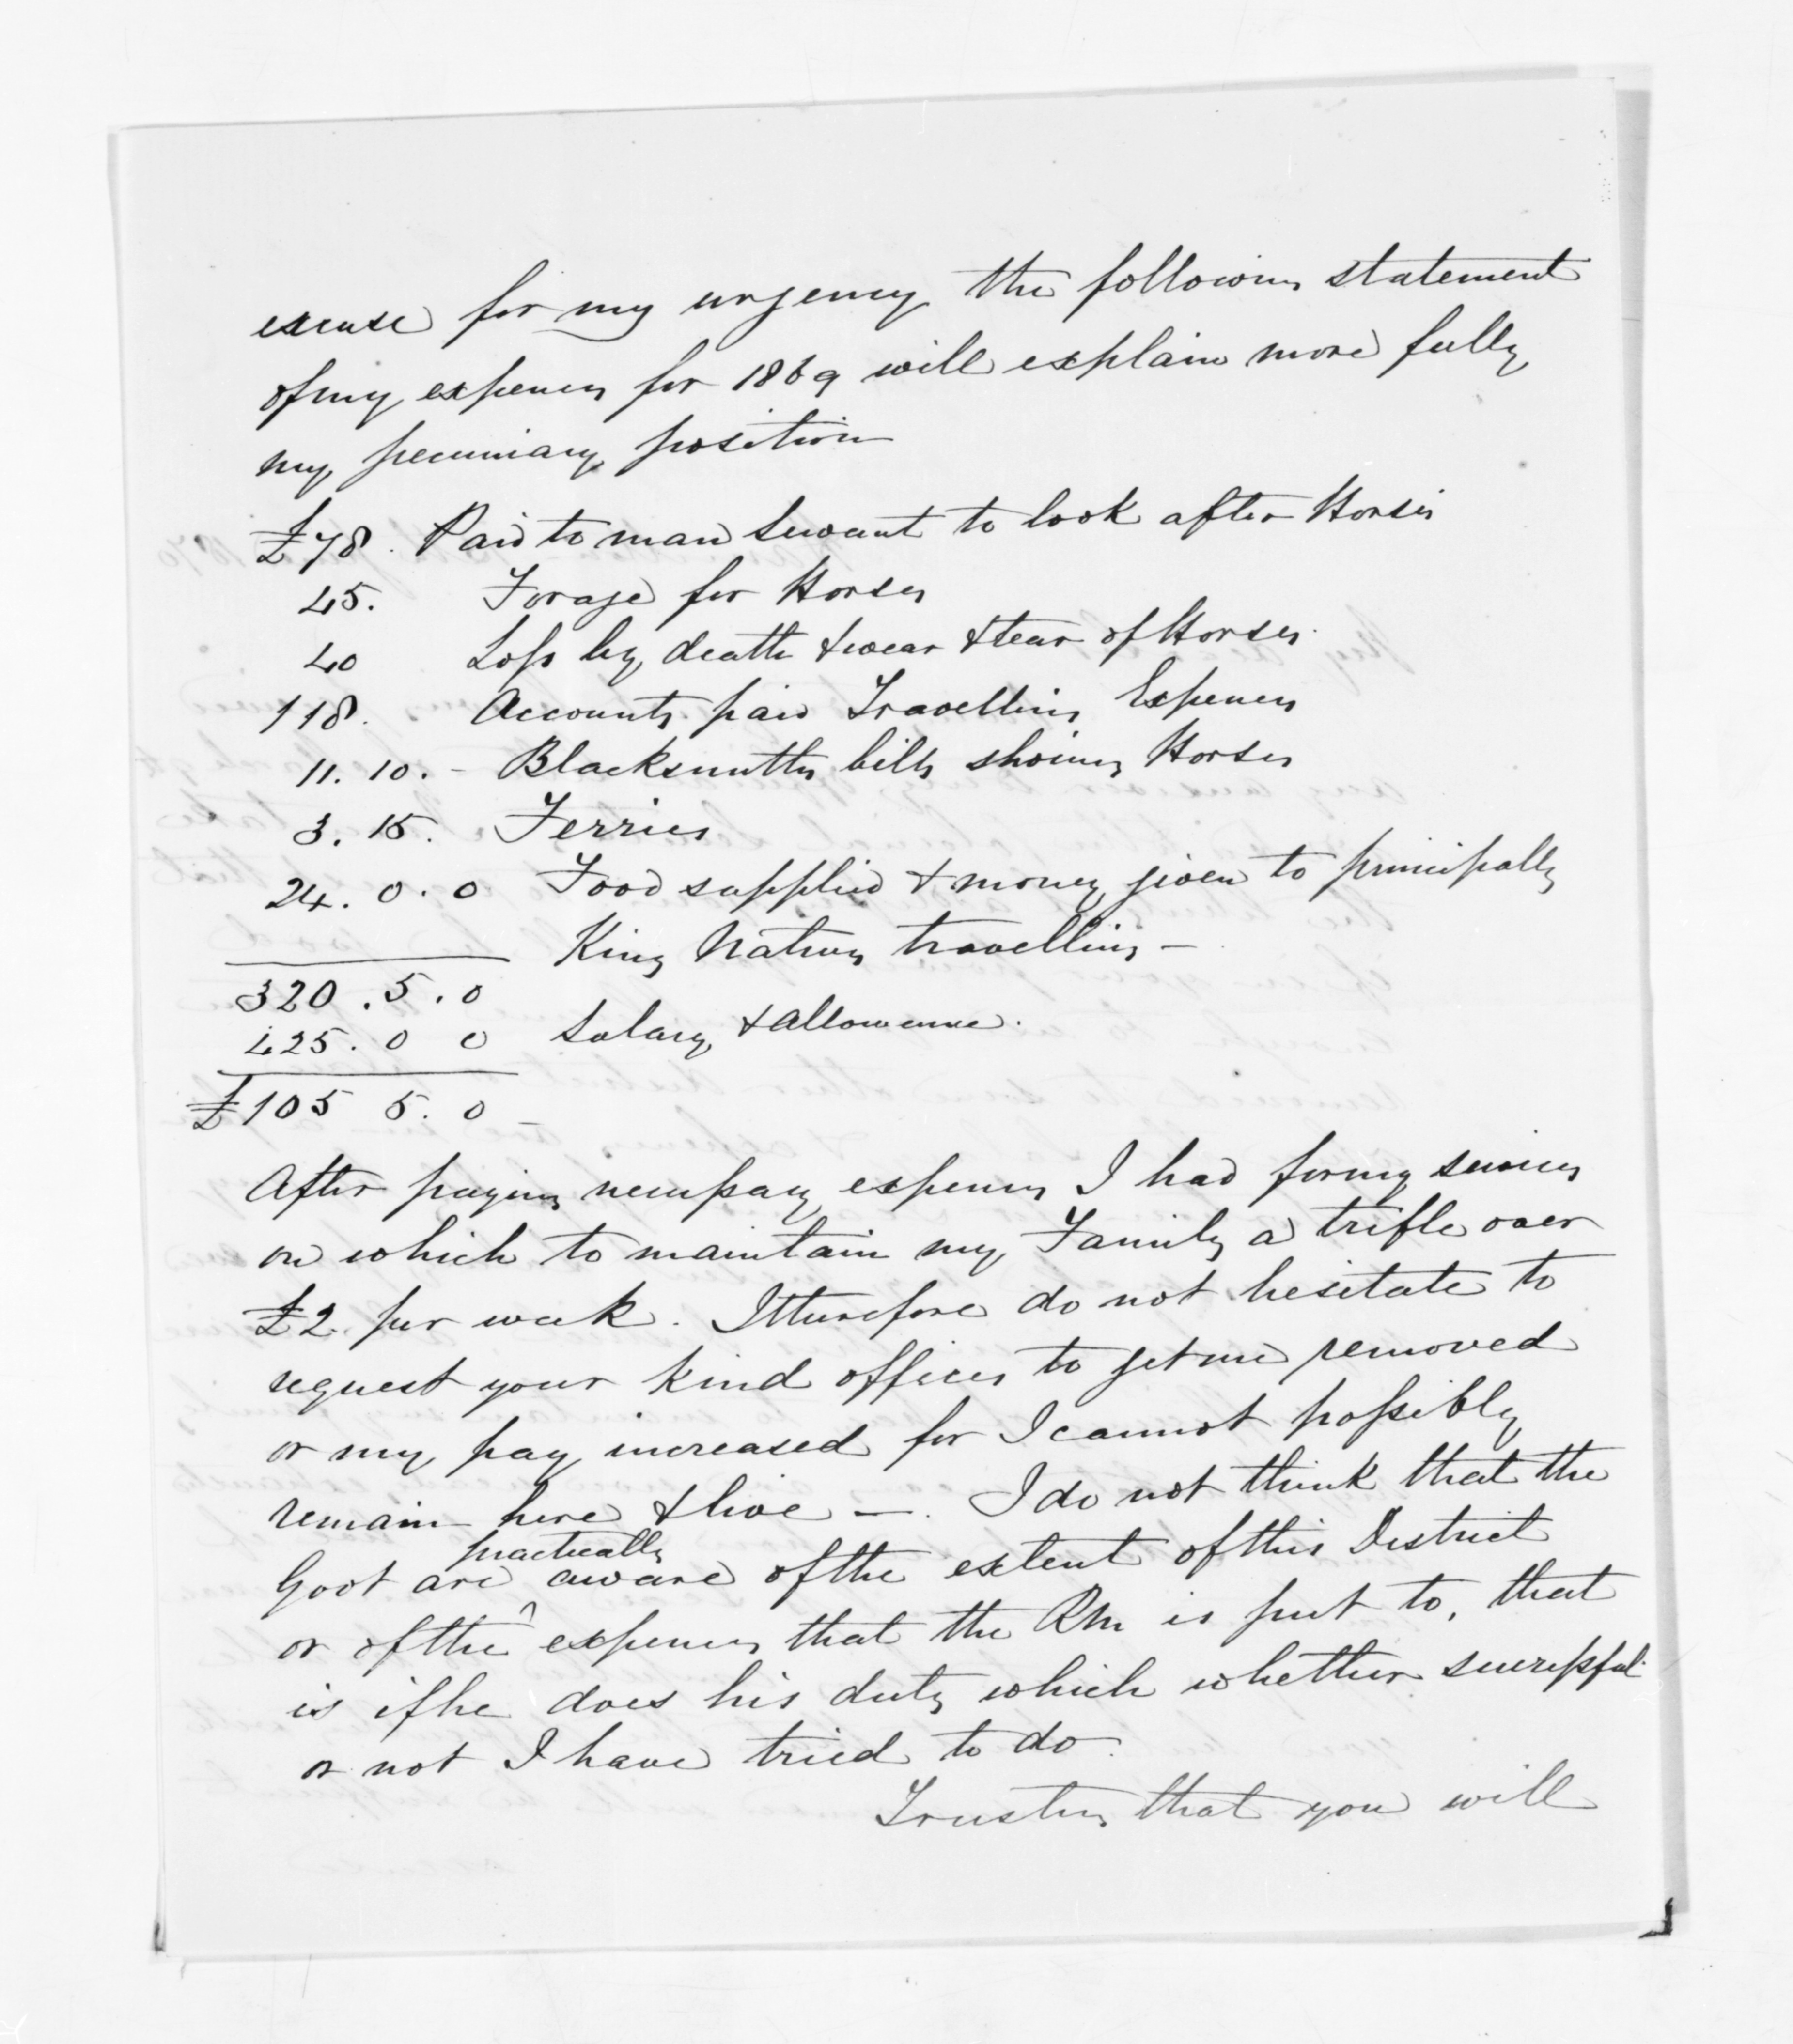 excuse for my urgency the following statement
of my expenses for 1869 will explain more fully
my pecuniary position
£78. Paid to man servant to look after Horses
45. Forage for Horses
40 Loss by death & wear & tear of Horses.
118. Accounts paid Travelling Expenses
11. 10. - Blacksmiths bills shoeing Horses
3. 15. Ferries
24. 0. 0 Food supplied & money given to principally
King Natives travelling —
320. 5. 0
425. 0 0 Salary & allowance.
£105 5. 0 -
After paying necessary expenses I had for my services
on which to maintain my Family a trifle over
£2. per week. I therefore do not hesitate to
request your kind offices to get me removed
or my pay increased for I cannot possibly
remain here & live —. I do not think that the
Govt are practically aware of the extent of this District
or of the expenses that the RM is put to, that
is if he does his duty which whether successful
or not I have tried to do.
Trusting that you will